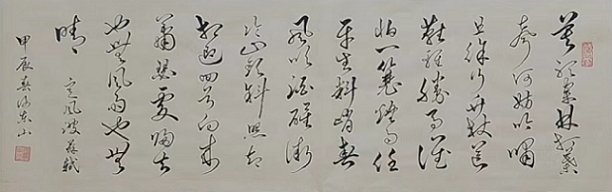 莫聽穿林打葉
聲何妨吟嘯
且徐行竹杖芒
鞋輕勝馬誰
怕一蓑煙雨任
平生料峭春
風吹酒醒微
冷山頭斜照却
相迎回首向來
蕭瑟處歸去
也無風雨也無
晴 定風波 蘇軾
甲辰春